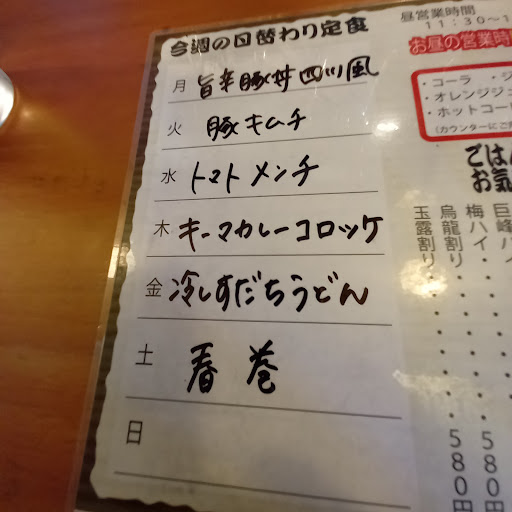 今週の日替わり定食
月 旨辛豚丼四川風
火 豚キムチ
水 トマトメンチ
木 キーマカレーコロッケ
金 冷しすだちうどん
土 春巻
日
昼営業時間
11:30~1
お昼の営業時
・コーラ ・ジ
・オレンジジュ
・ホットコー
(カウンターにご
ごは
お気
巨峰ハイ・・・・・・580円
梅ハイ・・・・・・580円
烏龍割り・・・・・・580円
玉露割り・・・・・・